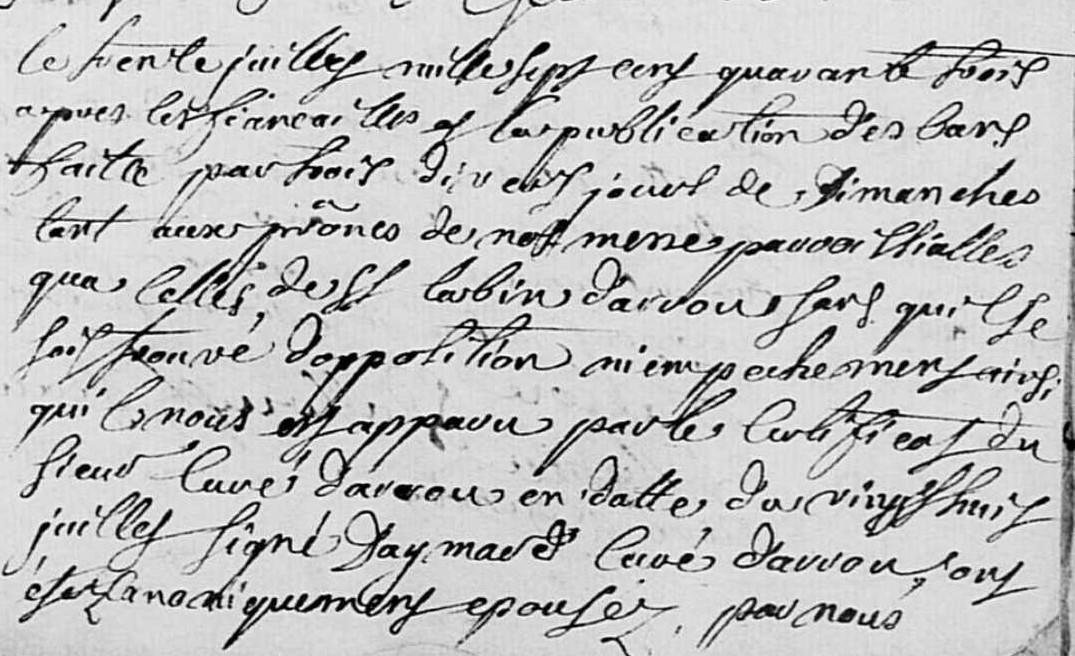 le trente juillet mille sept cens quarante trois
apres les fiancailles et la publication des bans
faitte par trois divers jours de dimanches
tant aux prônes de notre messe parroissialles
qua celles de st lubin darrou sans quil se
soit trouvé doppolition ni empechement ainsi
quil nous est apparu par le certificat du
sieur curé darrou en datte du vingt huit
juillet signé Daymard curé darrou, ont
étez canoniquement epousez par nous